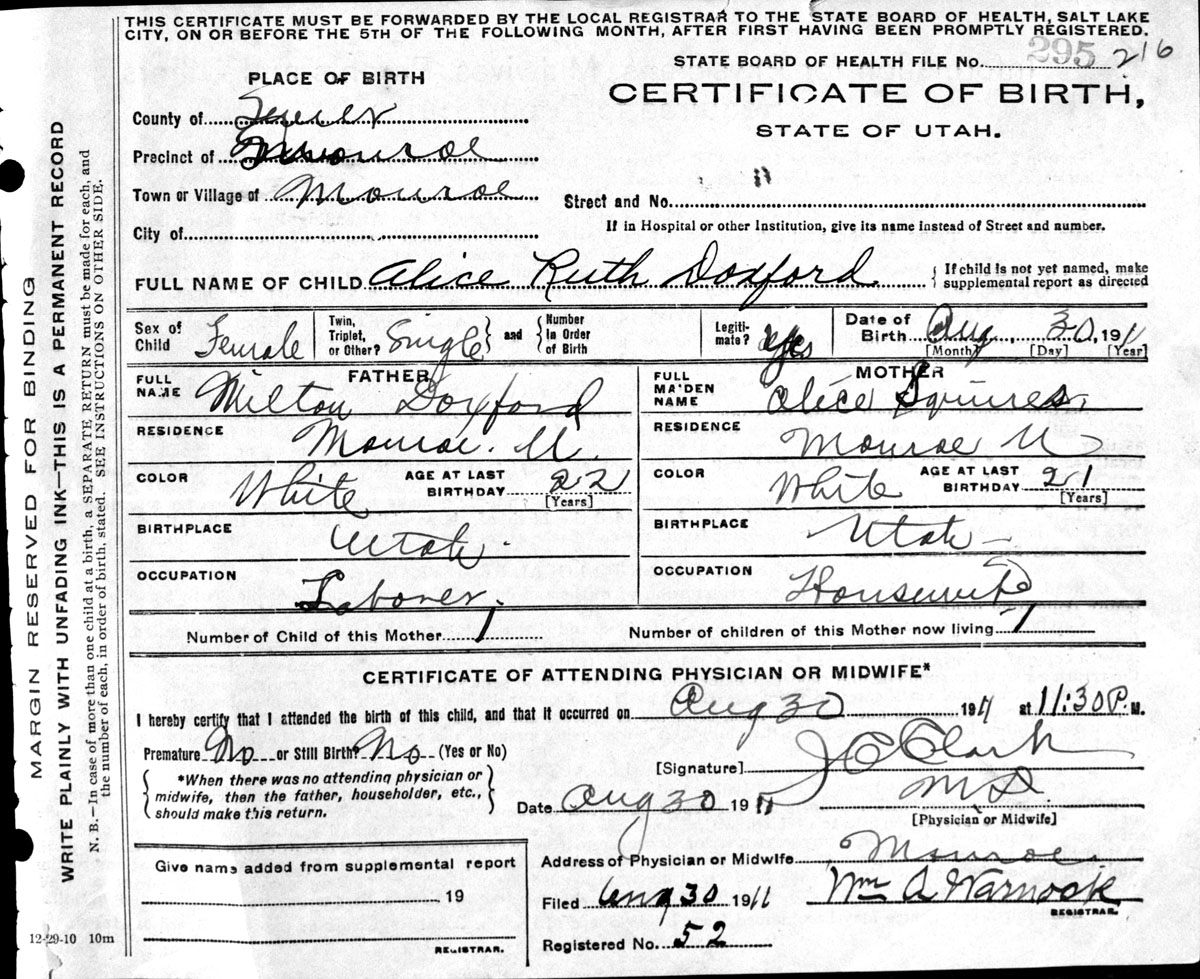 THIS CERTIFICATE MUST BE FORWARDED BY THE LOCAL REGISTRAR TO THE STATE BOARD OF HEALTH, SALT LAKE
CITY, ON OR BEFORE THE 5TH OF THE FOLLOWING MONTH, AFTER FIRST HAVING BEEN PROMPTLY REGISTERED.
STATE BOARD OF HEALTH FILE No. 295 216
PLACE OF BIRTH
CERTIFICATE OF BIRTH,
STATE OF UTAH.
County of Sevier
Precinct of Monroe
Town or Village of Monroe
Street and No.
City of
If in Hospital or other Institution, give its name instead of Street and number.
FULL NAME OF CHILD Alice Ruth Doxford
{ If child is not yet named, make supplemental report as directed
Sex of Child Female
Twin, Triplet, or Other? Single } and { Number in Order of Birth
Legitimate? Yes
Date of Birth Aug 30 1911
[Month] [Day] [Year]
FATHER
FULL NAME Milton Doxford
RESIDENCE Monroe. U.
COLOR White AGE AT LAST BIRTHDAY 22 [Years]
BIRTHPLACE Utah.
OCCUPATION Laborer.
MOTHER
FULL MAIDEN NAME Alice Squires
RESIDENCE Monroe U
COLOR White AGE AT LAST BIRTHDAY 21 [Years]
BIRTHPLACE Utah
OCCUPATION Housewife
Number of Child of this Mother 1 Number of children of this Mother now living 1
CERTIFICATE OF ATTENDING PHYSICIAN OR MIDWIFE*
I hereby certify that I attended the birth of this child, and that it occurred on Aug 30 1911 at 11:30 P. M.
Premature No or Still Birth? No (Yes or No)
{ *When there was no attending physician or midwife, then the father, householder, etc., should make this return. }
[Signature] J C Clark
MD.
[Physician or Midwife]
Date Aug 30 1911
Address of Physician or Midwife Monroe.
Give name added from supplemental report
19
REGISTRAR.
Filed Aug 30 1911 Wm A Warnock
REGISTRAR.
Registered No. 52
12-29-10 10m
MARGIN RESERVED FOR BINDING
WRITE PLAINLY WITH UNFADING INK—THIS IS A PERMANENT RECORD
N. B.—In case of more than one child at a birth, a SEPARATE RETURN must be made for each, and
the number of each, in order of birth, stated. SEE INSTRUCTIONS ON OTHER SIDE.